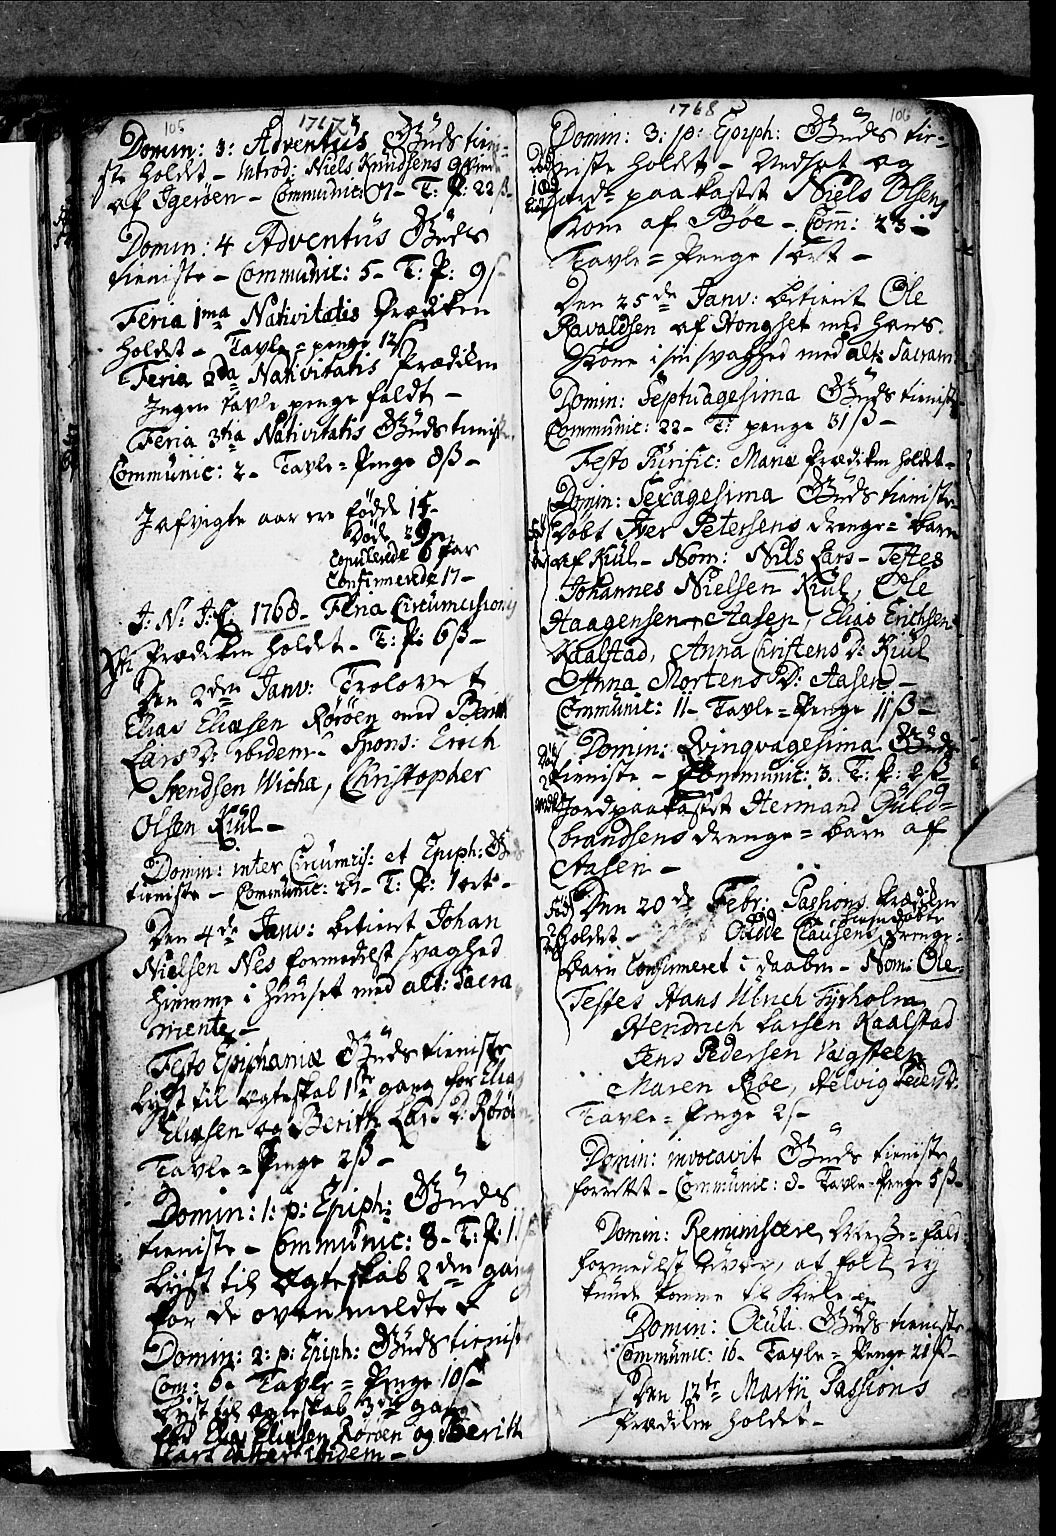 105
1767
Domin: 3: Adventus Guds tieni-
ste holdt – Introd: Niels Knudsens qvinde
af Igerøen – Communic: 17 – T: P: 22 ß
Domin: 4 Adventus Guds
tieniste – Communic: 5 – T: P: 9 ß
Feria 1ma Nativitatis Prædiken
holdet – Tavle = penge 12 ß
Feria 2da Nativitatis Prædiken
Ingen tavle penge faldt –
Feria 3tia Nativitatis Guds tieniste
Communic: 2 – Tavle = Penge 8 ß –
I afvigte aar ere fødde 15 –
Døde 29
Copulerede 6 Par
Confirmerede 17 –
I: N: J: C: 1768 – Feria Circumcisionis
Xti Prædiken holdet – T: P: 6 ß –
Den 2den Janv: Trolovet
Elias Eliasen Rørøen med Berith
Lars D: ibidem – Spons: Erich
Stendsen Wicha, Christopher
Olsen Kiul –
Domin: inter Circumcis: et Epiph: Guds
tieniste – Communic: 27 – T: P: 1 ort –
Den 4de Janv: betient Johan
Nielsen Nes formedelst svaghed
hiemme i Huuset med alt: Sacra
mente –
Festo Epiphaniæ Guds tieniste
Lyst til ægteskab 1ste gang for Elias
Eliasen og Berith Lars D: Rørøen
Tavle = Penge 2 ß –
Domin: 1: p: Epiph: Guds
tieniste – Communic: 8 – T: P: 1
Lyst til Ægteskab 2den gang
for de ovenmeldte
Domin: 2: p: Epiph: Guds tieniste
Com: 6 – Tavle = Penge 10 ß –
Lyst til ægteskab 3die gang
for Elias Eliasen Rørøen og Berith
Lars datter ibidem –
1768
106
Domin: 3: p: Epiph: Guds tie-
niste holdet – Udsat og
Jord paakastet Niels Olsens
Kone af Bøe – Com: 23 –
Tavle = Penge 1 ort –
Den 25de Janv: betient Ole
Ravaldsen af Hongset med hans
Kone i sin svaghed med alt: Sacram
Domin: Septuagesima Guds tieniste
Communic: 22 – T: penge 31 ß –
Festo Purific: Mariæ Prædiken holdet –
Domin: Sexagesima Guds tieniste
Døbt Iver Petersens drenge = barn
af Kiul – Nom: Nils Lars – Testes
Johannes Nielsen Kiul, Ole
Haagensen Aasen, Elias Erichsen
Kaalstad, Anna Christens D: Kiul
Anna Mortens D: Aasen –
Communic: 11 – Tavle = Penge 11 ß –
Domin: Qvinqvagesima Guds
tieniste – Communic: 3. T: P: 2 ß –
Jordpaakastet Hermand Guld=
brandsens drenge = barn af
Aasen –
Den 20de Febr: Passions Prædiken
holdet – Odde Clausens hiemdøbte drenge=
barn Confirmeret i daaben – Nom: Ole –
Testes Hans Ulrich Tyrholm
Hendrich Larsen Kaalstad
Jens Pedersen Vægsteen
Maren Roe, Helvig Peders D:
Tavle = Penge 2 ß –
Domin: invocavit Guds tieniste
forrettet – Communic: 8 – Tavle = Penge 5 ß –
Domin: Reminiscere Messe = fald
formedelst uvær, at folk ej
kunde komme til Kirke
Domin: Oculi Guds tieniste
Communic: 16 – Tavle = Penge 21 ß –
Den 12te Martii Passions
Prædiken holdet –